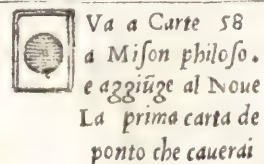 Va a Carte 58
a Miſon philoſo.
e aggiũge al Noue
La prima carta de
ponto che cauerai